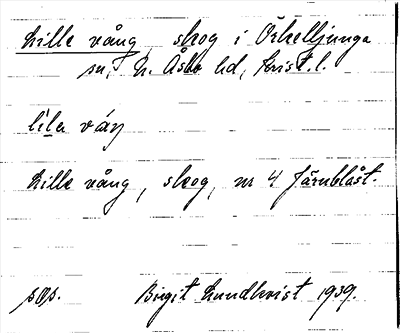 Lille vång, skog i Örkelljunga
sn, N. Åsbo hd, Krist. l.
lila våŋ
Lille vång, skog, nr 4 Järnblåst.
sos. Birgit Lundkvist 1939.